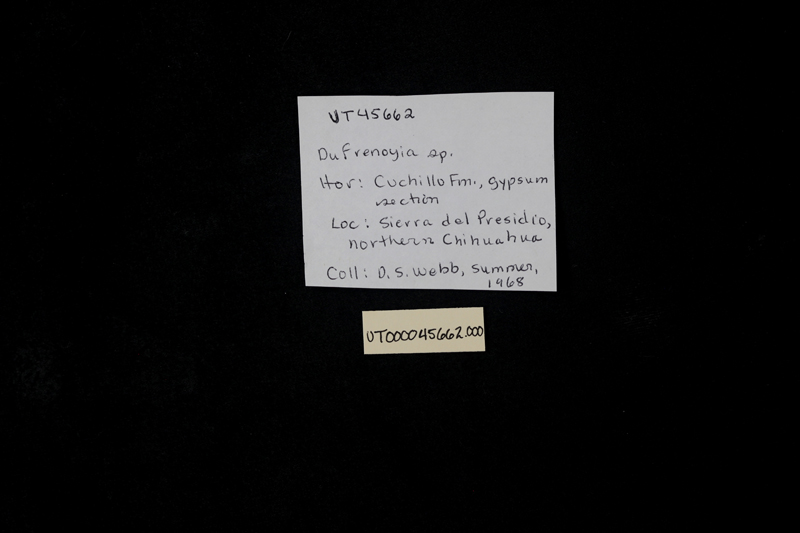 UT45662
Dufrenoyia sp.
Hor: Cuchillo Fm., gypsum
section
Loc: Sierra del Presidio,
northern Chihuahua
Coll: D.S. Webb, summer,
1968
UT000045662.000